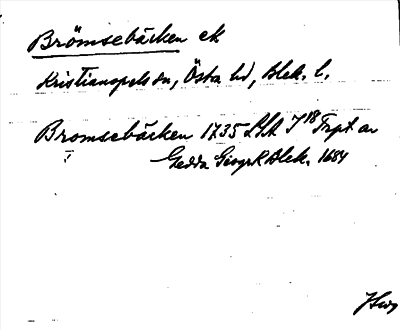 Brömsebäcken ek
Kristianopels sn, Östra hd, Blek. l.
Bromsebäcken 1735 LSA I 18 Trpt av
Gedda Geogr K Blek. 1684